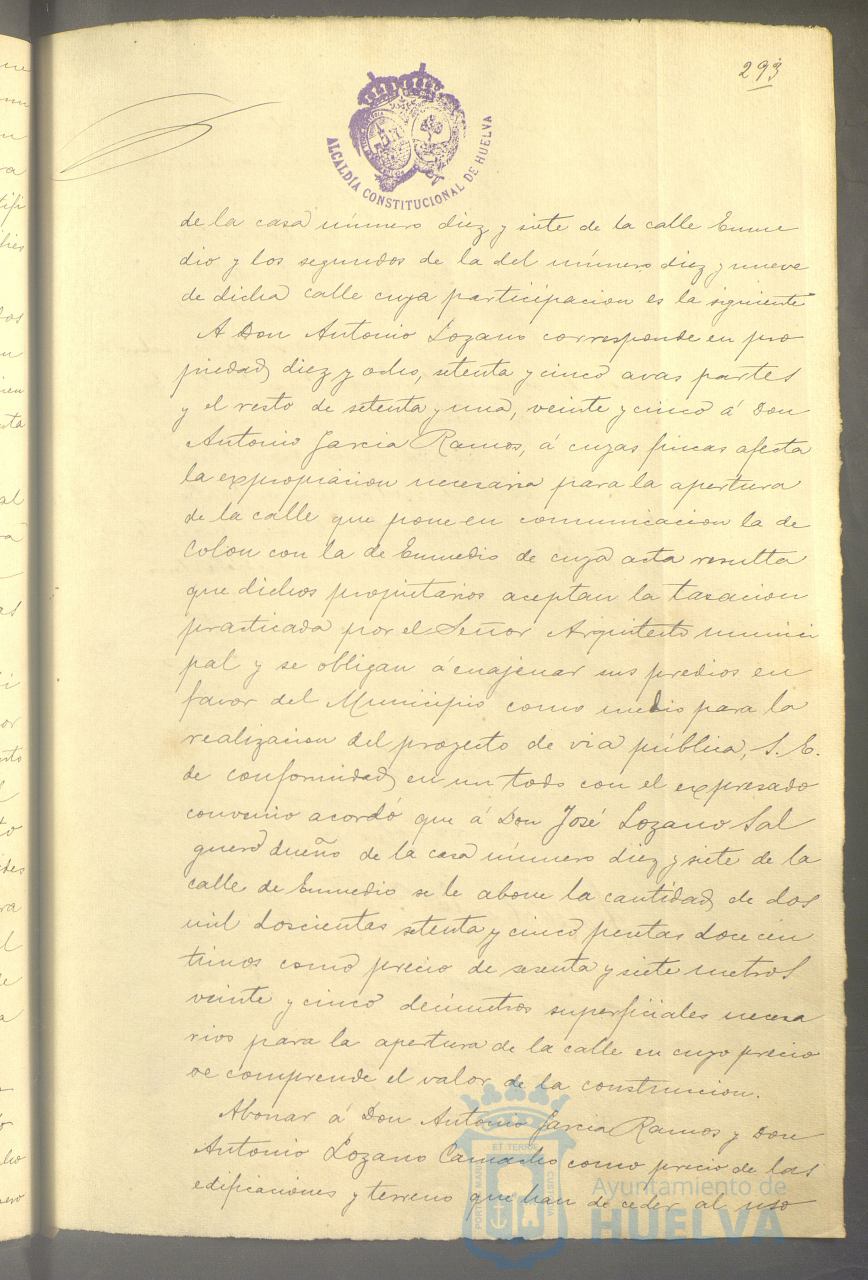 293
ALCALDÍA CONSTITUCIONAL DE HUELVA
de la casa número diez y siete de la calle Enme
dio y los segundos de la del número diez y nueve
de dicha calle cuya participacion es la siguiente
A Don Antonio Lozano corresponde en pro
piedad diez y ocho, setenta y cinco avas partes
y el resto de setenta y una, veinte y cinco á Don
Antonio Garcia Ramos, á cuyas fincas afecta
la expropiacion necesaria para la apertura
de la calle que pone en comunicacion la de
Colon con la de Enmedio de cuya acta resulta
que dichos propietarios aceptan la tasacion
practicada por el Señor Arquitecto munici
pal y se obligan á enajenar sus predios en
favor del Municipio como medio para la
realizacion del proyecto de via pública, S. E.
de conformidad en un todo con el expresado
convenio acordó que á Don José Lozano Sal
guero dueño de la casa número diez y siete de la
calle de Enmedio se le abone la cantidad de dos
mil doscientas setenta y cinco pesetas doce cen
timos como precio de sesenta y siete metros
veinte y cinco decimetros superficiales necesa
rios para la apertura de la calle en cuyo precio
se comprende el valor de la construccion.
Abonar á Don Antonio Garcia Ramos y Don
Antonio Lozano Camacho como precio de las
edificaciones y terreno que han de ceder al uso
PORTUS MARIS ET TERRAE CUSTODIA
Ayuntamiento de
HUELVA